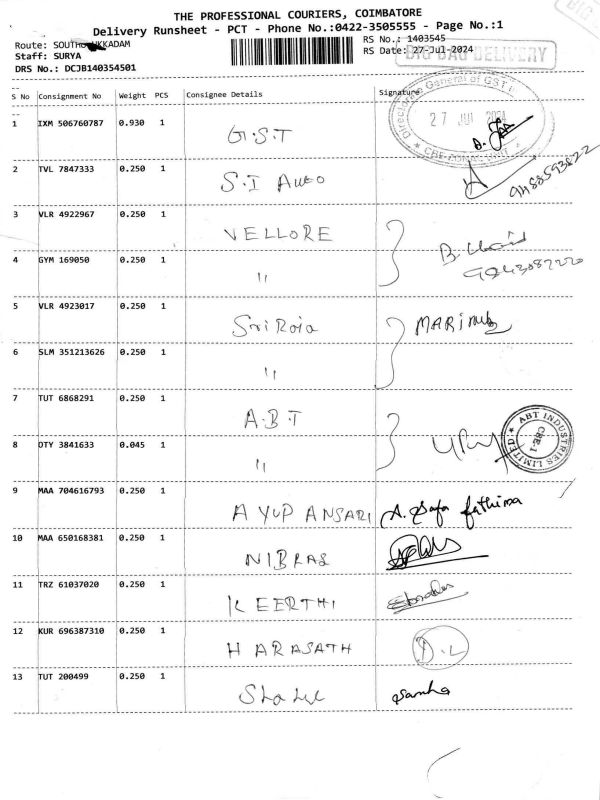 THE PROFESSIONAL COURIERS, COIMBATORE
Delivery Runsheet - PCT - Phone No.:0422-3505555 - Page No.:1
Route: SOUTH UKKADAM
RS No.: 1403545
Staff: SURYA
RS Date: 27-Jul-2024
BIG BAG DELIVERY
DRS No.: DCJB140354501
S No Consignment No Weight PCS Consignee Details Signature
Directorate General of GST I
27 JUL
1 IXM 506760787 0.930 1 G.S.T
2 TVL 7847333 0.250 1 S.I Auto
3 VLR 4922967 0.250 1 VELLORE
4 GYM 169050 0.250 1 "
5 VLR 4923017 0.250 1 Sri Roja
6 SLM 351213626 0.250 1 "
7 TUT 6868291 0.250 1 A.B.T
ABT INDUSTRIES LIMITED
CBE-1
8 OTY 3841633 0.045 1 "
9 MAA 704616793 0.250 1 AYUP ANSARI A. Safa fathima
10 MAA 650168381 0.250 1 NIBRAS
11 TRZ 61037020 0.250 1 KEERTHI
12 KUR 696387310 0.250 1 HARASATH D.L
13 TUT 200499 0.250 1